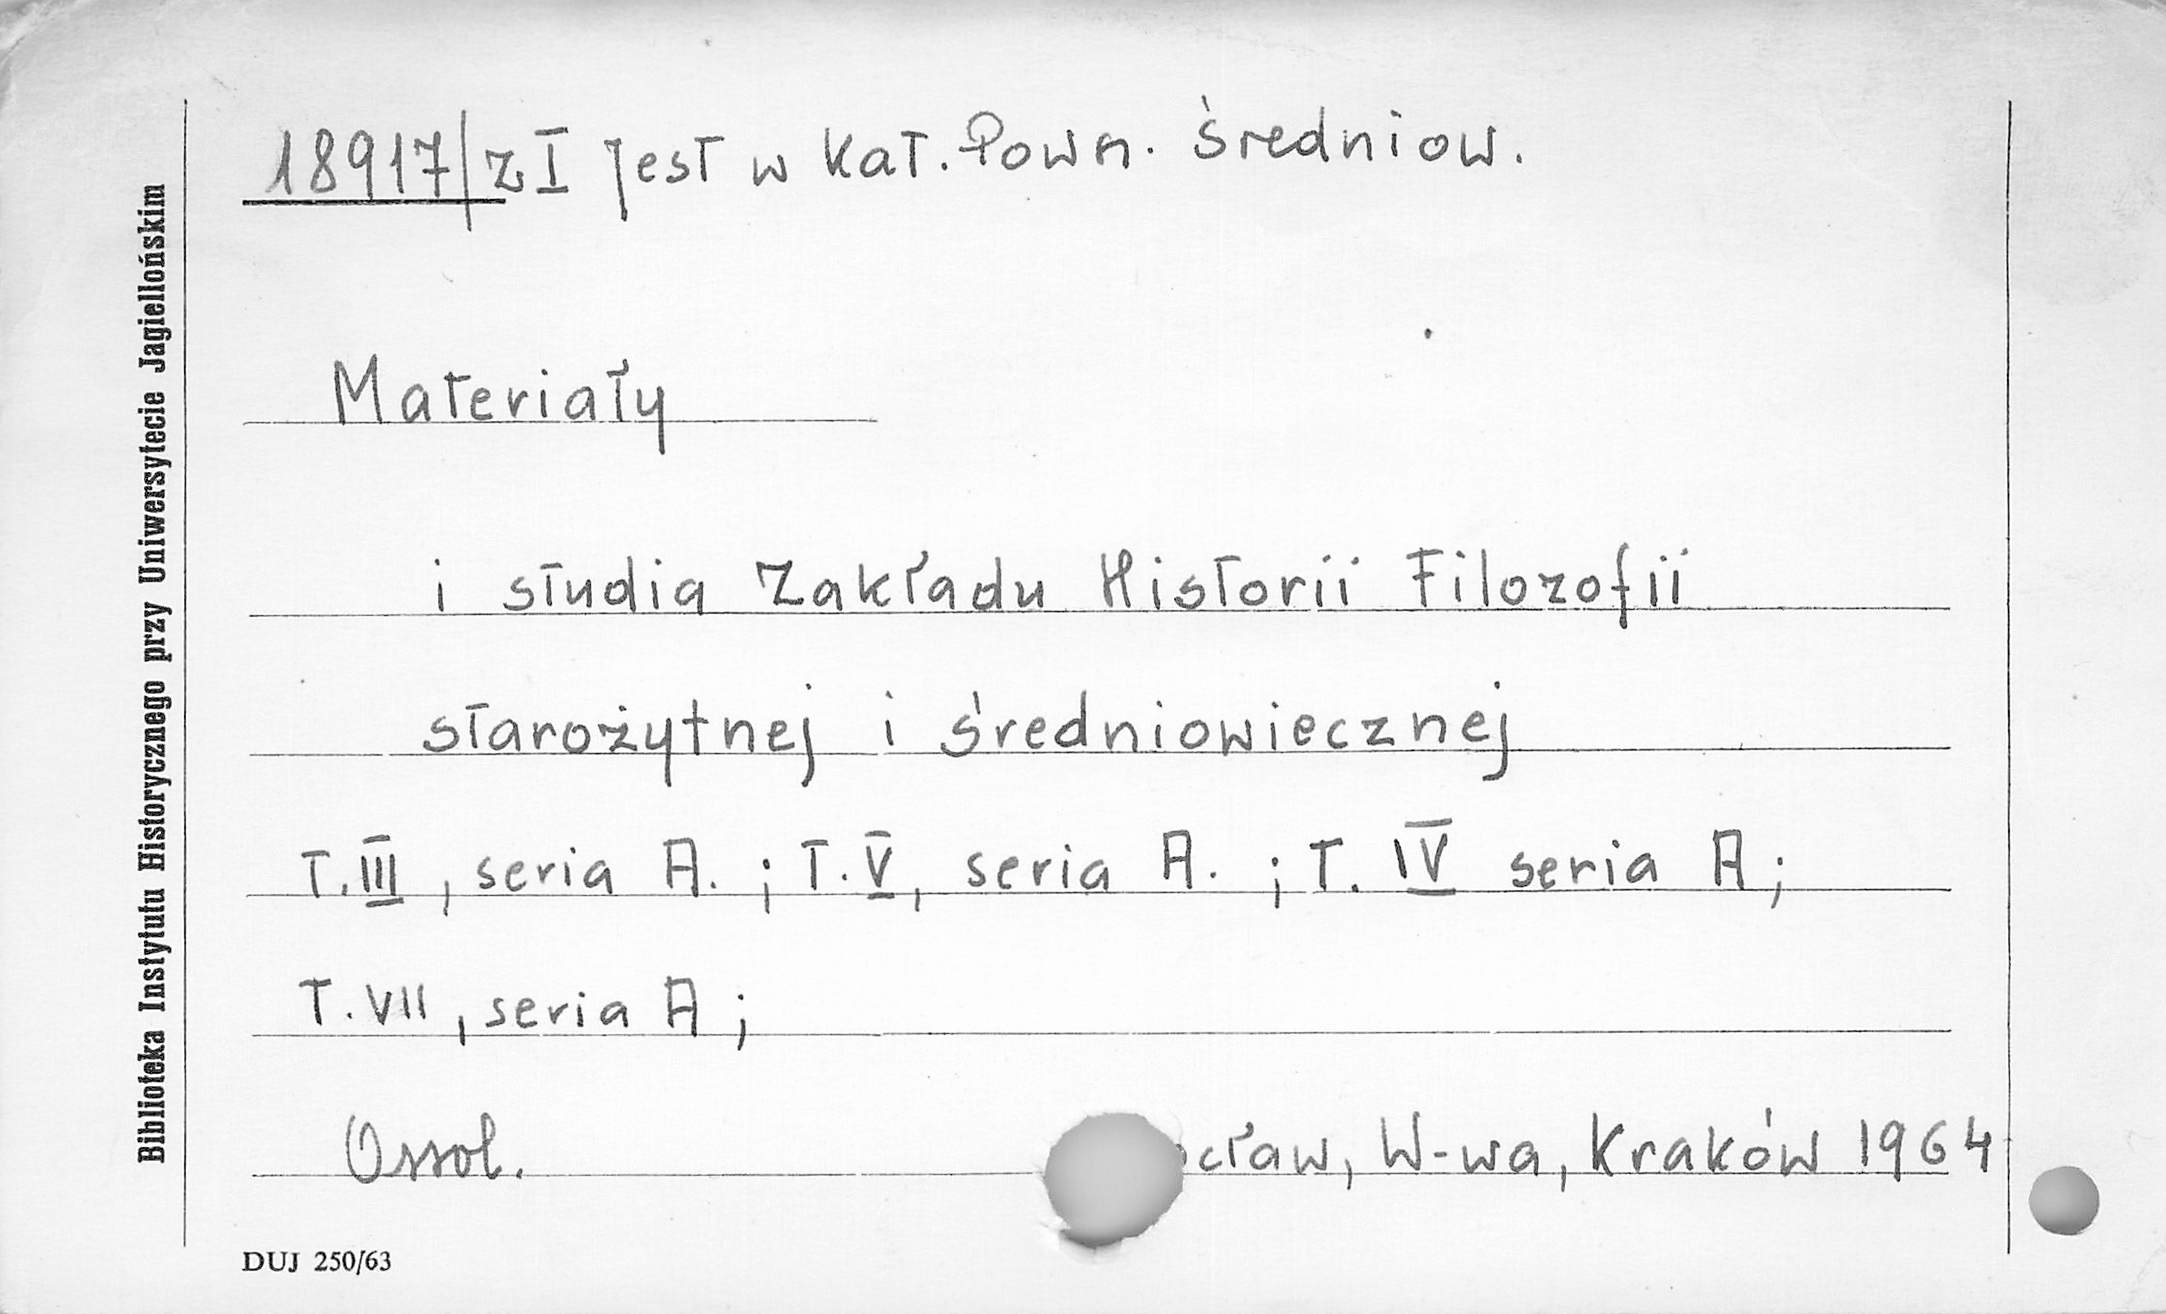 18917/z I jest w kat. Pown. średniow.
Materiały
i studia Zakładu Historii Filozofii
starożytnej i średniowiecznej
T. III, seria A. ; T. V, seria A. ; T. IV seria A;
T. VII, seria A;
Ossol. cław, W-wa, Kraków 1964
DUJ 250/63
Biblioteka Instytutu Historycznego przy Uniwersytecie Jagiellońskim